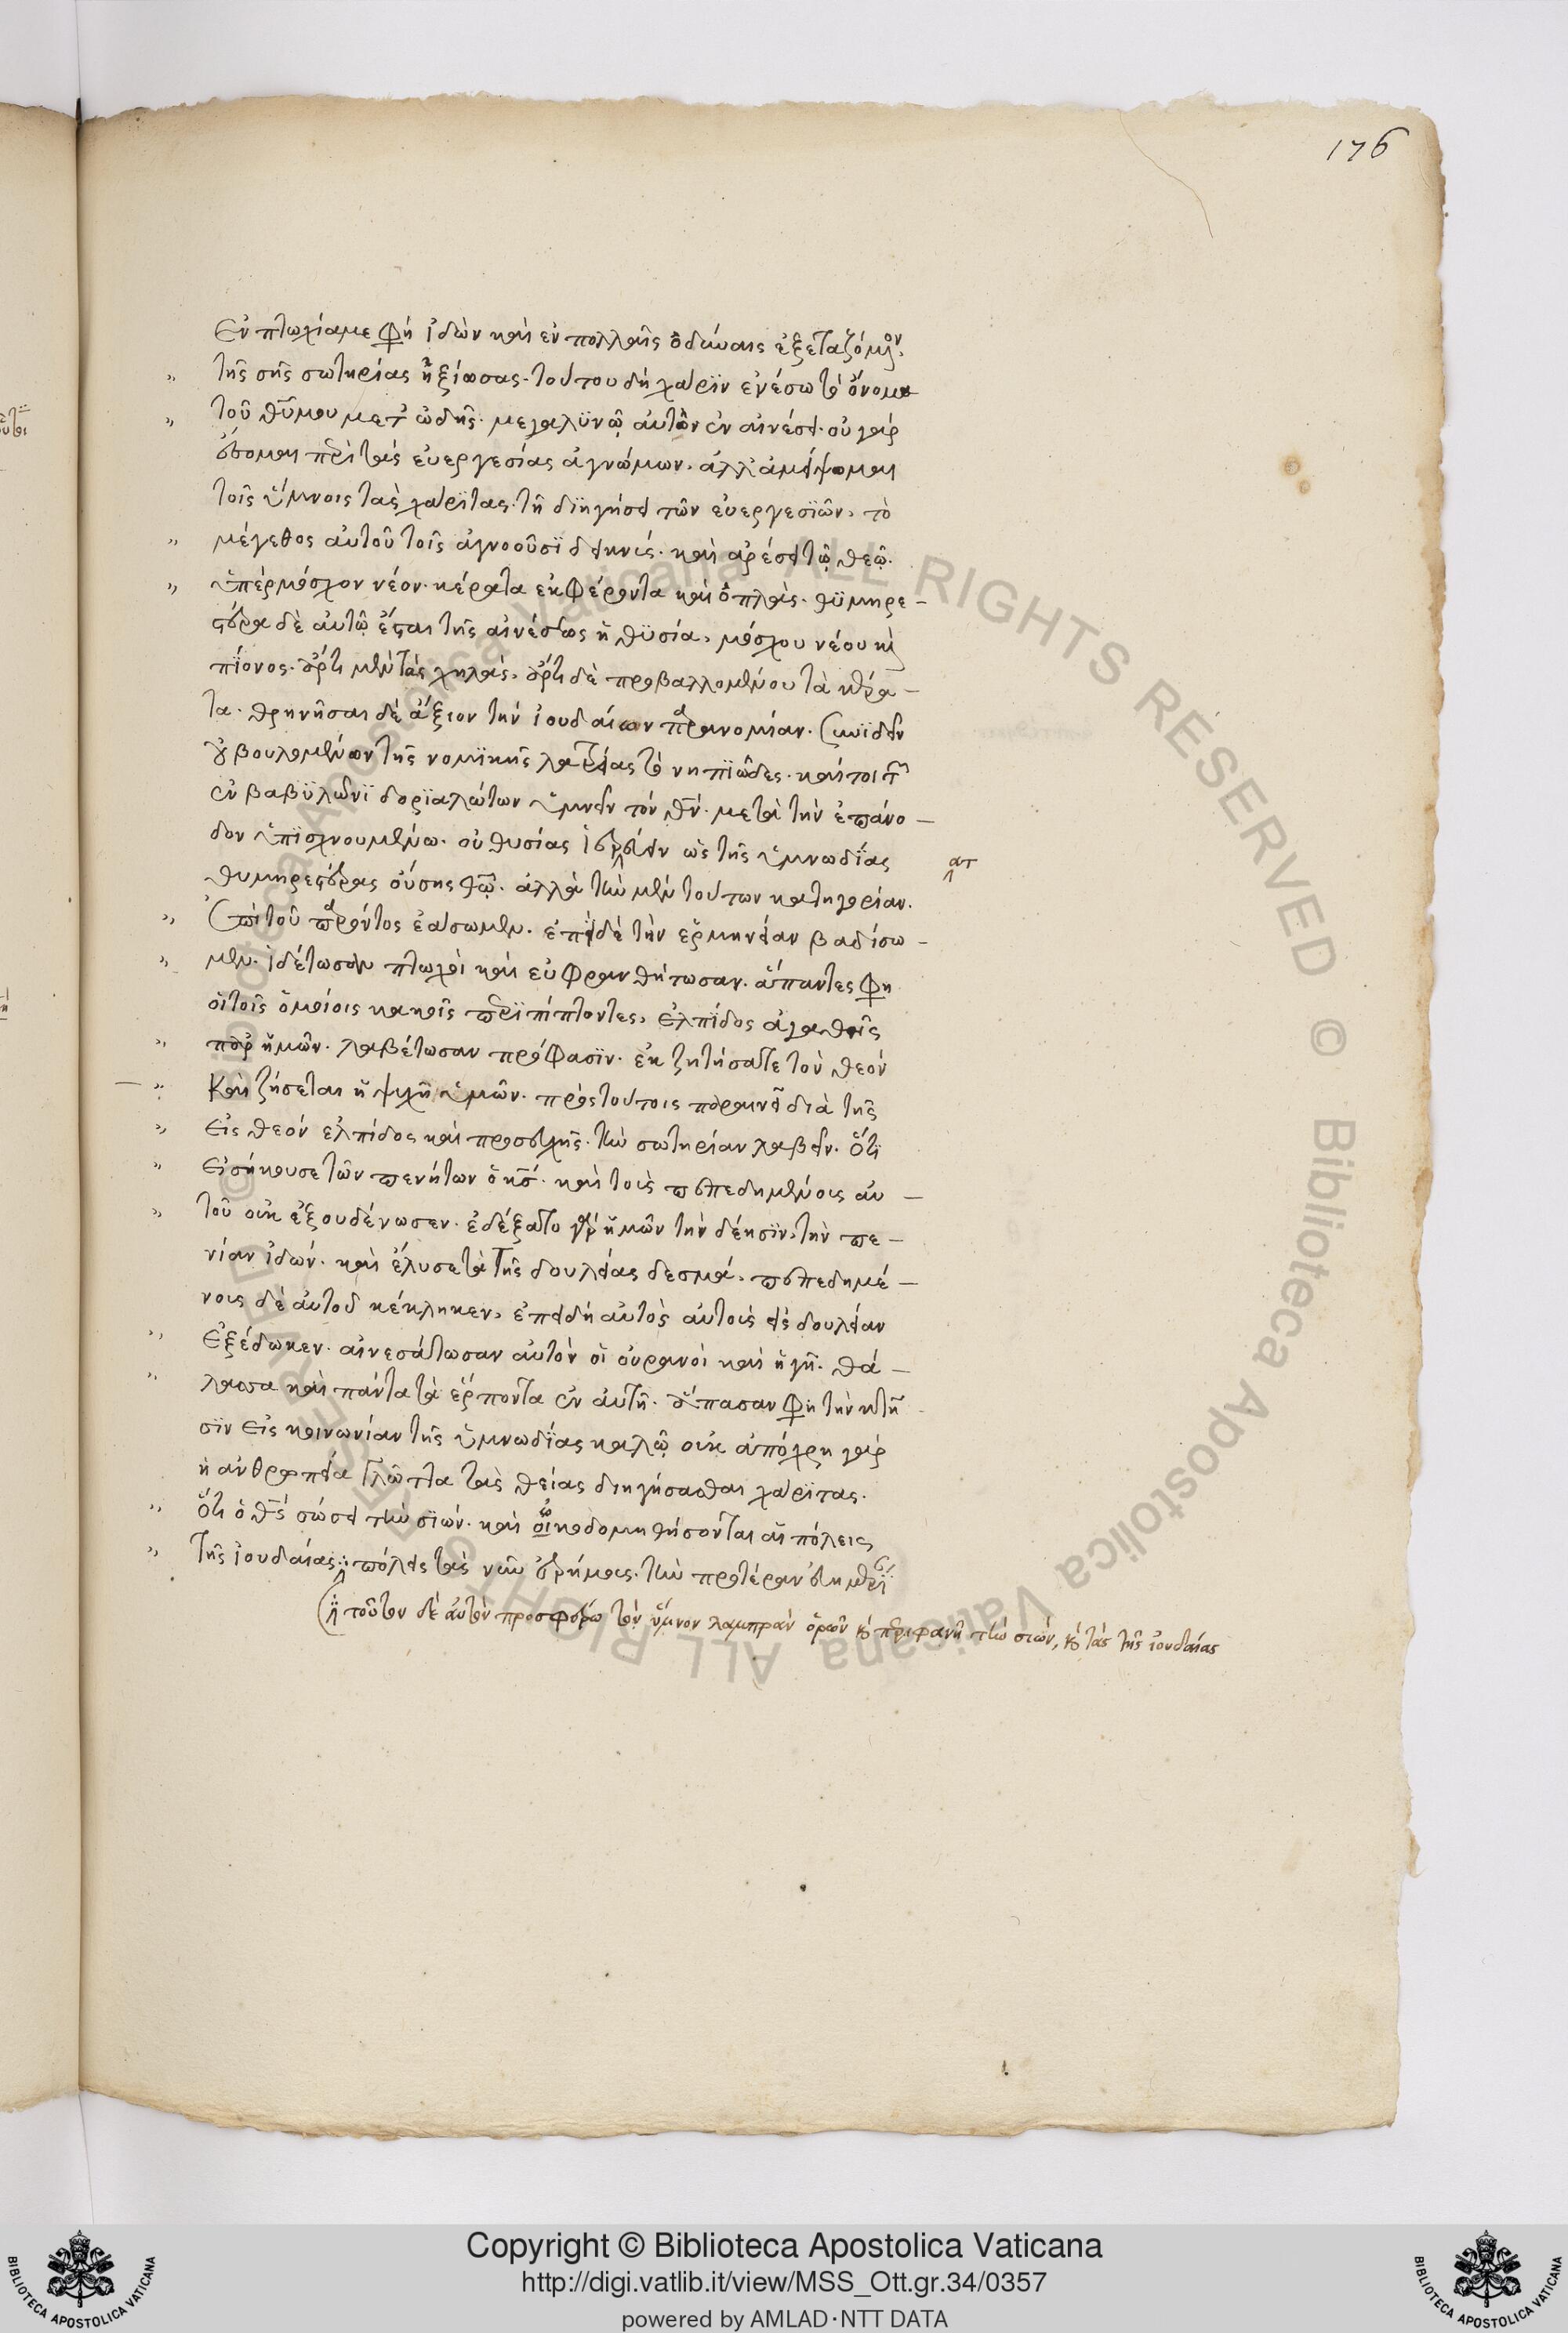 176
Ἐν πτωχία με φη ἰδὼν καὶ ἐν πολλαῖς ὀδύναις ἐξεταζόμενον,
τῆς σῆς σωτηρίας ἠξίωσας. τούτου δὴ χάριν αἰνέσω τὸ ὄνομα
τοῦ θῡ μου μετ' ὠδῆς. μεγαλϋνῶ αὐτὸν ἐν αἰνέσει. οὐ γὰρ
ἔσομαι περὶ τὰς εὐεργεσίας ἀγνώμων. ἀλλ' ἀμείψομαι
τοῖς ὕμνοις τὰς χάριτας. τῆ διηγήσει τῶν εὐεργεσϊῶν, τὸ
μέγεθος αὐτοῦ τοῖς ἀγνοοῦσϊ δεικνύς. καὶ ἀρέσει τῶ θεῶ.
ὑπὲρ μόσχον νέον. κέρατα ἐκφέροντα καὶ ὁπλάς. θϋμηρε-
στέρα δὲ αὐτῶ ἔσται τῆς αἰνέσεως ἡ θϋσία, μόσχου νέου καὶ
πίονος. ἄρτι μὲν τὰς χηλάς, ἄρτι δὲ προβαλλομένου τὰ κέρα-
τα. θρηνῆσαι δὲ ἄξιον τὴν ἰουδαίων παρανομίαν. συνϊδεῖν
οὐ βουλομένων τῆς νομϊκῆς λατρείας τὸ νηπϊῶδες. καίτοι τῶν
ἐν βαβϋλῶνϊ δορϊαλώτων ὑμνεῖν τὸν θν̄. μετὰ τὴν ἐπάνο-
δον ὑπϊσχνουμένων. οὐ θυσίας ἱερεύειν ὡς τῆς ὑμνωδίας
ατ
θυμηρεστέρας οὔσης θῶ̄. ἀλλὰ τὴν μὲν τούτων κατηγορίαν.
ἐπὶ τοῦ παρόντος ἐάσωμεν. ἐπὶ δὲ τὴν ἑρμηνείαν βαδίσω-
μεν. ἰδέτωσαν πτωχοὶ καὶ εὐφρανθήτωσαν. ἅπαντες φη
οἱ τοῖς ὁμοίοις κακοῖς περϊπίπτοντες, ἐλπίδος ἀγαθῆς
παρ' ἡμῶν. λαβέτωσαν πρόφασϊν. ἐκζητήσατε τὸν θεόν
Καὶ ζήσεται ἡ ψυχῆ ὑμῶν. πρὸς τούτοις παραινεῖ διὰ τῆς
εἰς θεὸν ἐλπίδος καὶ προσευχῆς. τὴν σωτηρίαν λαβεῖν. ὅτϊ
εἰσήκουσε τῶν πενήτων ὁ κς̄. καὶ τοὺς πεπεδημένους αὐ-
τοῦ οὐκ ἐξουδένωσεν. ἐδέξατο γὰρ ἡμῶν τὴν δέησϊν, τὴν πε-
νίαν ἰδών. καὶ ἔλυσε τὰ τῆς δουλείας δεσμά. πεπεδημέ-
νους δὲ αὐτοῦ κέκληκεν, ἐπειδὴ αὐτὸς αὐτοὺς εἰς δουλείαν
ἐξέδωκεν. αἰνεσάτωσαν αὐτὸν οἱ οὐρανοὶ καὶ ἡ γῆ. θά-
λασσα καὶ πάντα τὰ ἕρποντα ἐν αὐτῆ. ἅπασαν φη τὴν κτῆ
σϊν εἰς κοινωνίαν τῆς ὑμνωδίας καλῶ οὐκ ἀπόχρη γὰρ
ἡ ἀνθρωπεία γλῶττα τὰς θείας διηγήσασθαι χάριτας.
ὅτι ὁ θς̄ σώσει τὴν σϊών. καὶ οἰκοδομηθήσονται αἱ πόλεις
τῆς ἰουδαίας. πόλεις τὰς νῦν ἐρήμους. τὴν προτέραν
τοῦτον δὲ αὐτὸν προσφέρω τὸν ὕμνον λαμπρὰν ὁρῶν καὶ περιφανῆ τὴν σιών, καὶ τὰς τῆς ἰουδαίας
Copyright © Biblioteca Apostolica Vaticana
http://digi.vatlib.it/view/MSS_Ott.gr.34/0357
powered by AMLAD·NTT DATA